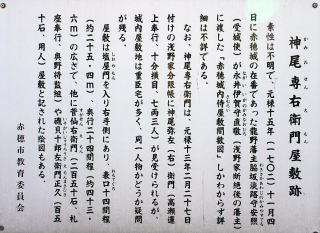 神尾専右衛門屋敷跡
素性は不明で、元禄十五年（一七〇二）十一月四
日に赤穂城の在番であった龍野藩主脇坂淡路守安照
（受城使）が永井伊賀守直敬（浅野家断絶後の藩主）
に渡した「赤穂城内侍屋敷間数図」しかわからず詳
細は不詳である。
なお、神尾専右衛門は、元禄十三年二月二十七日
付けの浅野家分限帳に神尾弥左（右）衛門（高瀬運
上奉行、十分横目、七両三人）が見受けられるが、
城内屋敷地は重臣宅が多く、同一人物かどうか疑問
が残る
屋敷は塩屋門を入り右手側にあり、表口十四間程
（約二十五・四ｍ）、奥行二十四間程（約四十三・
六ｍ）の広さで、他に菅仙右衛門（二百五十石、札
座奉行、奥野将監組）や磯貝十郎左衛門正久（百五
十石、用人）屋敷と記された絵図もある。
赤穂市教育委員会